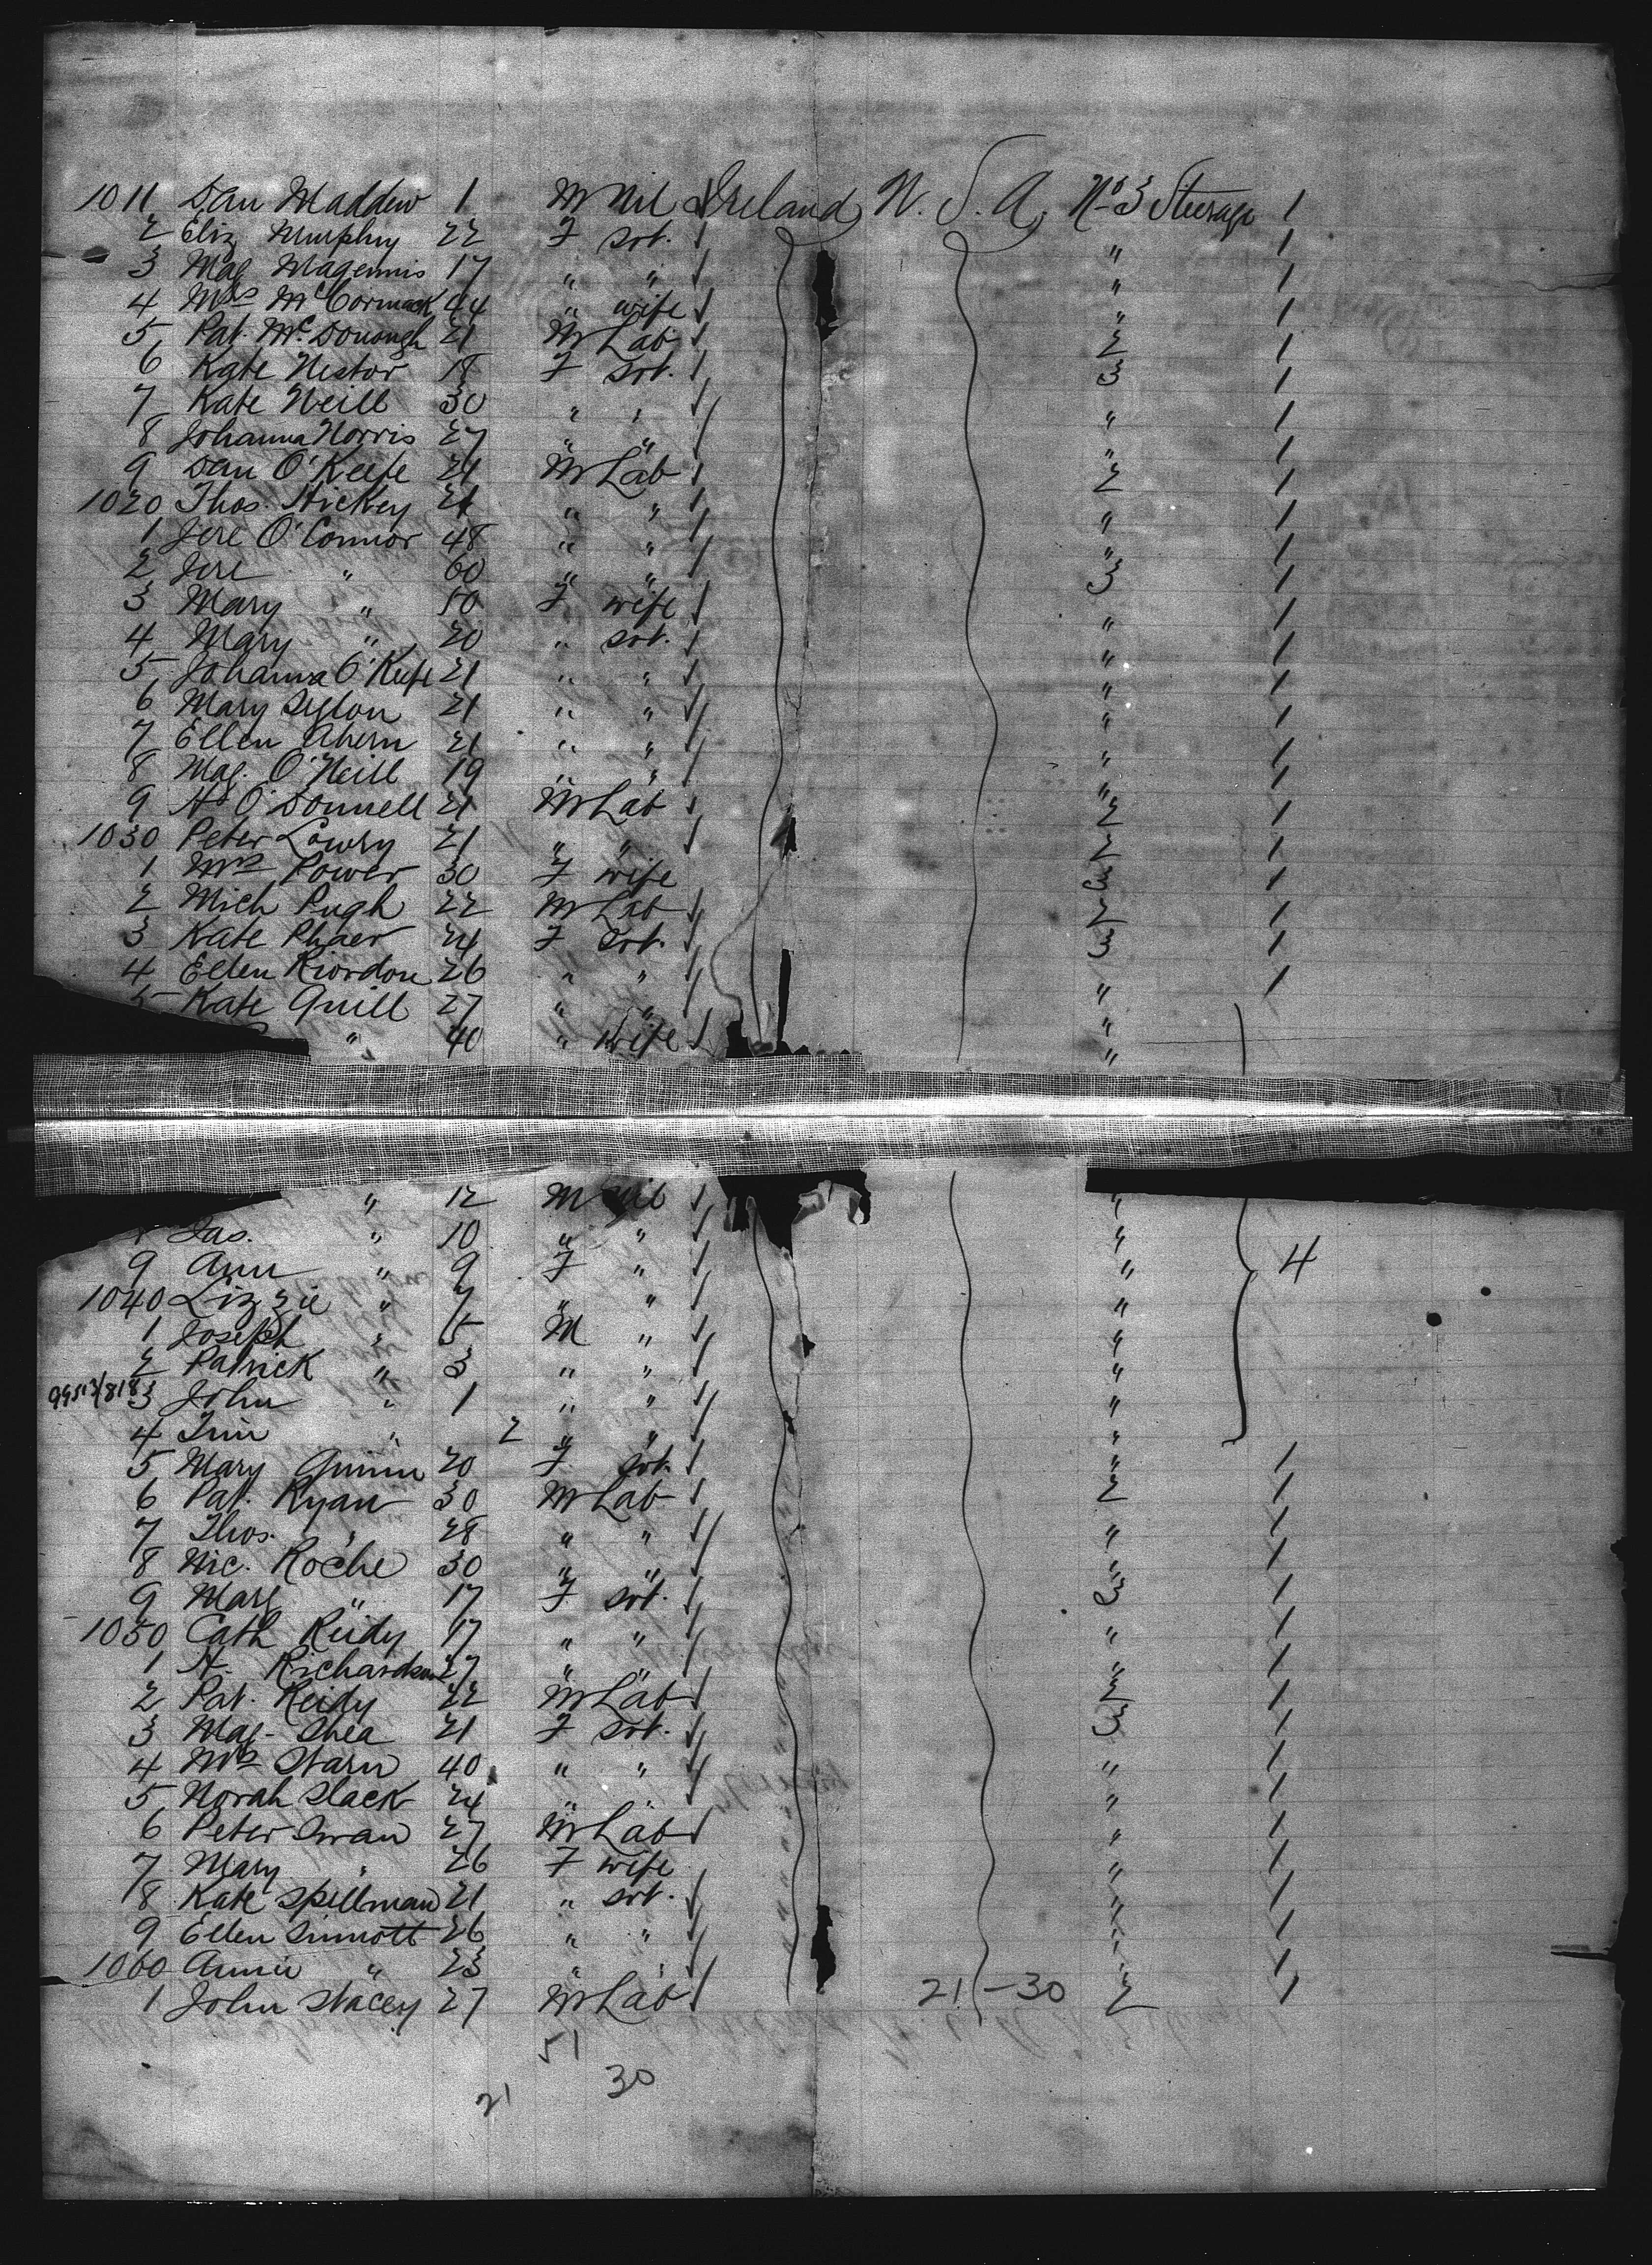 1011 Dan Madden 1 M Nil Ireland U.S.A. No 3 Steerage 1
2 Eliz Murphy 22 F Svt. " 1
3 Mag Magennis 17 " " " 1
4 Mrs McCormack 44 " wife " 1
5 Pat. McDonough 21 M Lab 2 1
6 Kate Nestor 18 F Svt. 3 1
7 Kate Neill 30 " " " 1
8 Johanna Norris 27 " " " 1
9 Dan O'Keefe 21 M Lab 2 1
1020 Thos. Hickey 21 " " " 1
1 Jere O'Connor 48 " " " 1
2 Jere " 60 " " 3 1
3 Mary " 50 F wife " 1
4 Mary " 20 " Svt. " 1
5 Johanna O'Keefe 21 " " " 1
6 Mary 21 " " " 1
7 Ellen Ahern 21 " " " 1
8 Mag. O'Neill 19 " " " 1
9 O'Donnell 21 M Lab 2 1
1030 Peter Lowry 21 " " 1
1 Mrs Power 30 F wife 3 1
2 Mich Pugh 22 M Lab 2 1
3 Kate Phaer 24 F Svt. 3 1
4 Ellen Riordon 26 " " " 1
5 Kate Quill 27 " " "
" 40 " wife "
" 12 M Nil "
Jas. " 10 " " "
9 Ann " 9 F " " 4
1040 Lizzie " 7 " " "
1 Joseph " 5 M " "
2 Patrick " 3 " " "
3 John " 1 " " "
4 Tim " 2 " " "
5 Mary Quinn 20 F Svt. " 1
6 Pat. Ryan 30 M Lab 2 1
7 Thos. " 28 " " " 1
8 Nic. Roche 30 " " " 1
9 Marg " 17 F Svt. 3 1
1050 Cath Reidy 17 " " " 1
1 Richardson 27 " " " 1
2 Pat. Reidy 22 M Lab 2 1
3 Mag. Shea 21 F Svt. 3 1
4 Mrs Starn 40 " " " 1
5 Norah Slack 24 " " " 1
6 Peter Swan 27 M Lab " 1
7 Mary " 26 F wife " 1
8 Kate Spellman 21 " Svt. " 1
9 Ellen Sinnott 26 " " " 1
1060 Annie " 23 " " " 1
1 John Stacey 27 M Lab 21-30 2 1
51
30
21